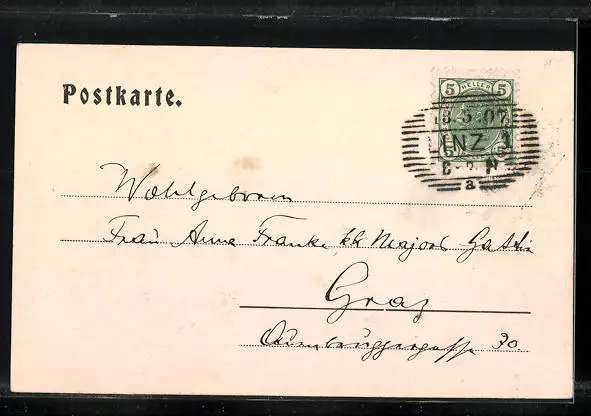 Postkarte.
5 HELLER 5
5. 07
INZ 1
a
Wohlgeboren
Frau Anna Franke kk Majors Gattin
Graz
30